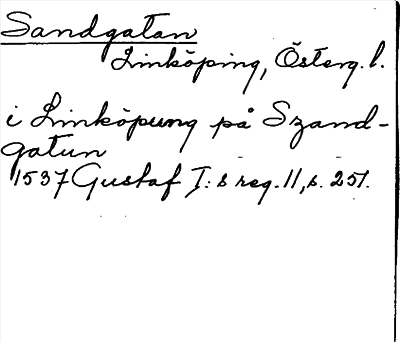 Sandgatan
Linköping, Österg. l.
i Linköpung på Szand-
gatun
1537 Gustaf I:s reg. 11, s. 251.